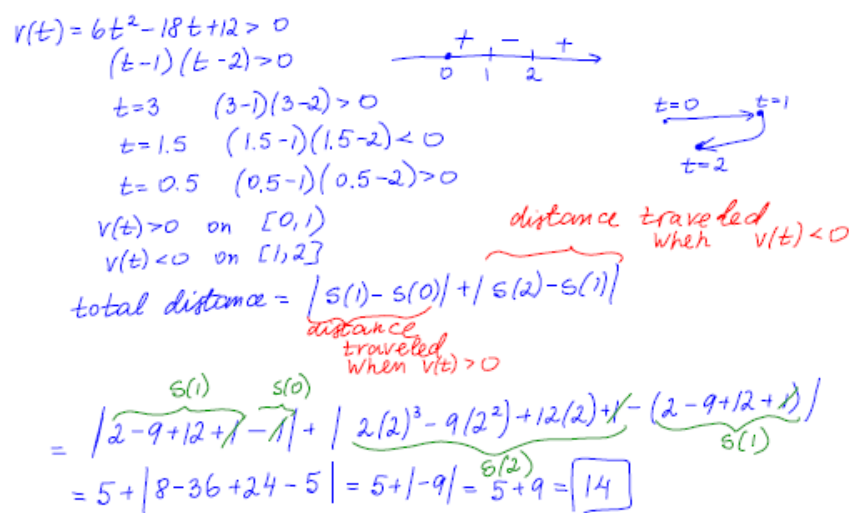 v(t) = 6t² - 18t + 12 > 0
(t-1)(t-2) > 0
+ - +
0 1 2
t=3 (3-1)(3-2) > 0
t=0 t=1
t=2
t=1.5 (1.5-1)(1.5-2) < 0
t=0.5 (0.5-1)(0.5-2) > 0
v(t)>0 on [0,1)
v(t)<0 on [1,2]
distance traveled
when v(t)<0
total distance = |s(1)-s(0)| + |s(2)-s(1)|
distance
traveled
when v(t)>0
s(1) s(0)
= |2-9+12+1-1| + |2(2)³-9(2²)+12(2)+1-(2-9+12+1)|
s(2) s(1)
= 5+|8-36+24-5| = 5+|-9| = 5+9 = 14